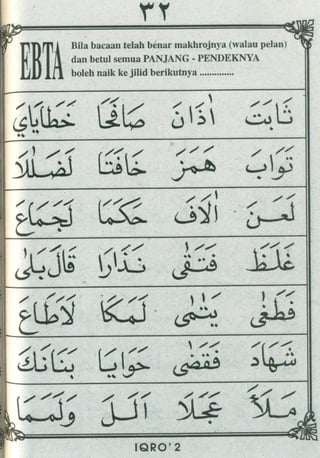 ٣٢
EBTA
Bila bacaan telah benar makhrojnya (walau pelan)
dan betul semua PANJANG - PENDEKNYA
boleh naik ke jilid berikutnya ..............
ثَابَتَ اٰذَانَ صَافَحَا خَطَايَايَ
تَوَابَ هَمَزَ خَافَتَا لَضَلٰلَا
لَعَنَ اٰلَافَ حَكَمَا لَجَمَاعَ
غَلَظَ فَتَقٰى نَذَارَا قَالَ بَلٰى
فَطَغٰى يَتٰمٰى لَمَكَا لَاَطَاعَ
شَهَادَ فَقَضٰى حَوَايَا بَنَانَكَ
مَلَأَ عَجَلَا اَلَلَ وَلَمَمَا
IQRO' 2